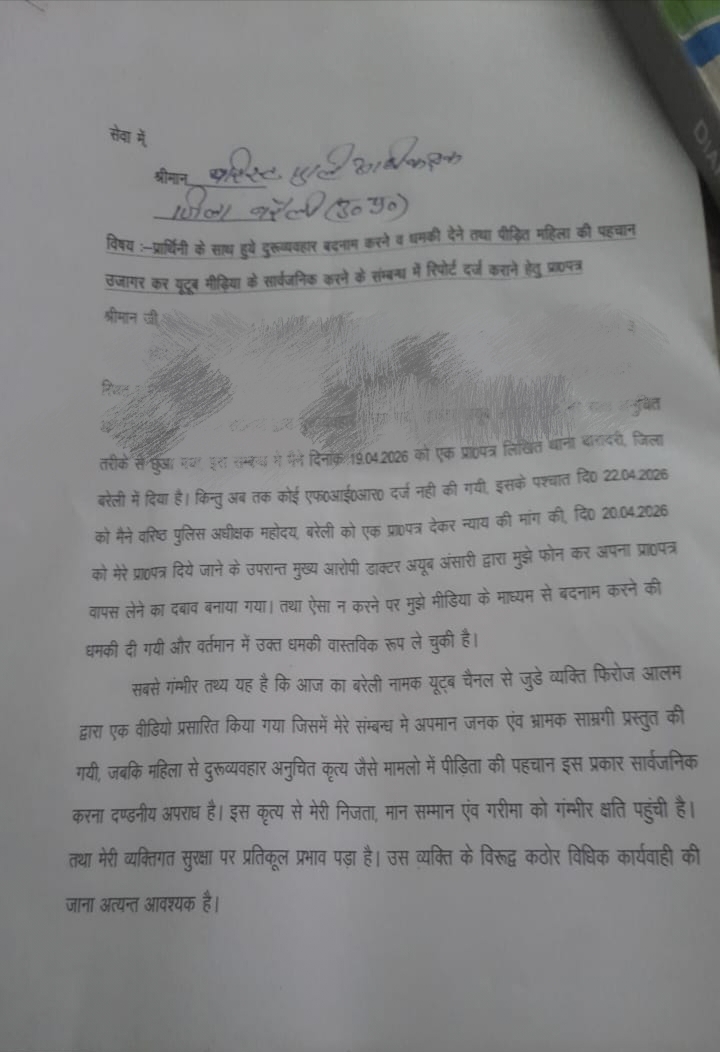 सेवा में
श्रीमान वरिष्ट पुलि अधीक्षक
जिला बरेली (उ० प्र०)
विषय :–प्रार्थिनी के साथ हुये दुरूव्यवहार बदनाम करने व धमकी देने तथा पीड़ित महिला की पहचान
उजागर कर यूटूब मीडिया के सार्वजनिक करने के संम्बन्ध में रिपोर्ट दर्ज कराने हेतु प्रा0पत्र
श्रीमान जी
अनुचित
तरीके से छुआ गया, इस सम्बन्ध में मैने दिनांक 19.04.2026 को एक प्रा0पत्र लिखित थाना बारादरी, जिला
बरेली में दिया है। किन्तु अब तक कोई एफ0आई0आर0 दर्ज नही की गयी, इसके पश्चात दि0 22.04.2026
को मैने वरिष्ठ पुलिस अधीक्षक महोदय, बरेली को एक प्रा0पत्र देकर न्याय की मांग की, दि0 20.04.2026
को मेरे प्रा0पत्र दिये जाने के उपरान्त मुख्य आरोपी डाक्टर अयूब अंसारी द्वारा मुझे फोन कर अपना प्रा0पत्र
वापस लेने का दबाव बनाया गया। तथा ऐसा न करने पर मुझे मीडिया के माध्यम से बदनाम करने की
धमकी दी गयी और वर्तमान में उक्त धमकी वास्तविक रूप ले चुकी है।
सबसे गंम्भीर तथ्य यह है कि आज का बरेली नामक यूट्ब चैनल से जुडे व्यक्ति फिरोज आलम
द्वारा एक वीडियो प्रसारित किया गया जिसमें मेरे संम्बन्ध मे अपमान जनक एंव भ्रामक साम्रगी प्रस्तुत की
गयी, जबकि महिला से दुरूव्यवहार अनुचित कृत्य जैसे मामलो में पीड़िता की पहचान इस प्रकार सार्वजनिक
करना दण्डनीय अपराध है। इस कृत्य से मेरी निजता, मान सम्मान एंव गरीमा को गंम्भीर क्षति पहुंची है।
तथा मेरी व्यक्तिगत सुरक्षा पर प्रतिकूल प्रभाव पड़ा है। उस व्यक्ति के विरूद्व कठोर विधिक कार्यवाही की
जाना अत्यन्त आवश्यक है।